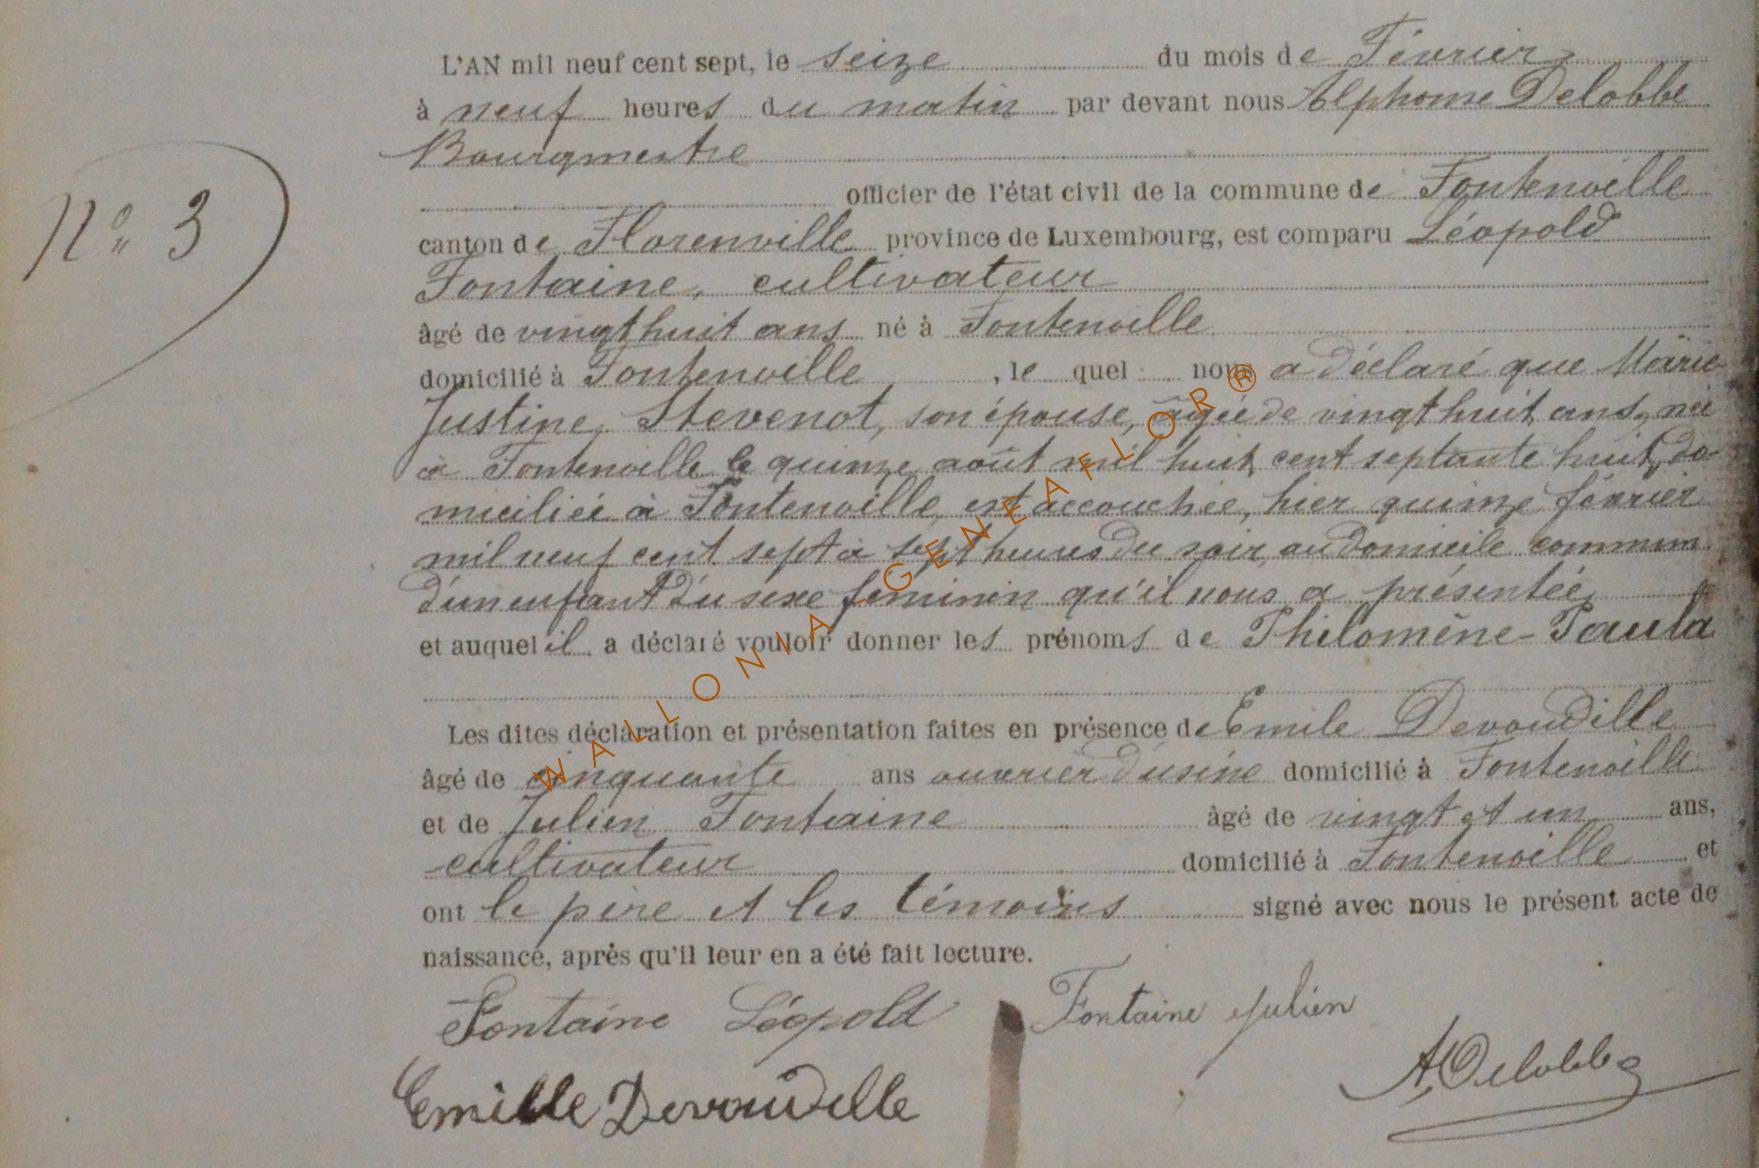 L'AN mil neuf cent sept, le seize du mois de Février
à neuf heures du matin par devant nous Alphonse Delobbe
Bourgmestre
officier de l'état civil de la commune de Fontenoille
N° 3
canton de Florenville province de Luxembourg, est comparu Léopold
Fontaine, cultivateur
âgé de vingthuit ans né à Fontenoille
domicilié à Fontenoille, le quel nous a déclaré que Marie
Justine Stevenot, son épouse, âgée de vingthuit ans, née
à Fontenoille le quinze août mil huit cent septante huit, do-
miciliée à Fontenoille, est accouchée, hier quinze février
mil neuf cent sept à sept heures du soir, au domicile commun
d'un enfant du sexe féminin qu'il nous a présentée
et auquel il a déclaré vouloir donner les prénoms de Philomène-Paula
Les dites déclaration et présentation faites en présence de Emile Devoudille
âgé de cinquante ans ouvrier d'usine domicilié à Fontenoille
et de Julien Fontaine âgé de vingt et un ans,
cultivateur domicilié à Fontenoille et
ont le père et les témoins signé avec nous le présent acte de
naissance, après qu'il leur en a été fait lecture.
Fontaine Léopold Fontaine Julien
Emille Devoudelle A. Delobbe
WALLONIA - GENEAFLOR®